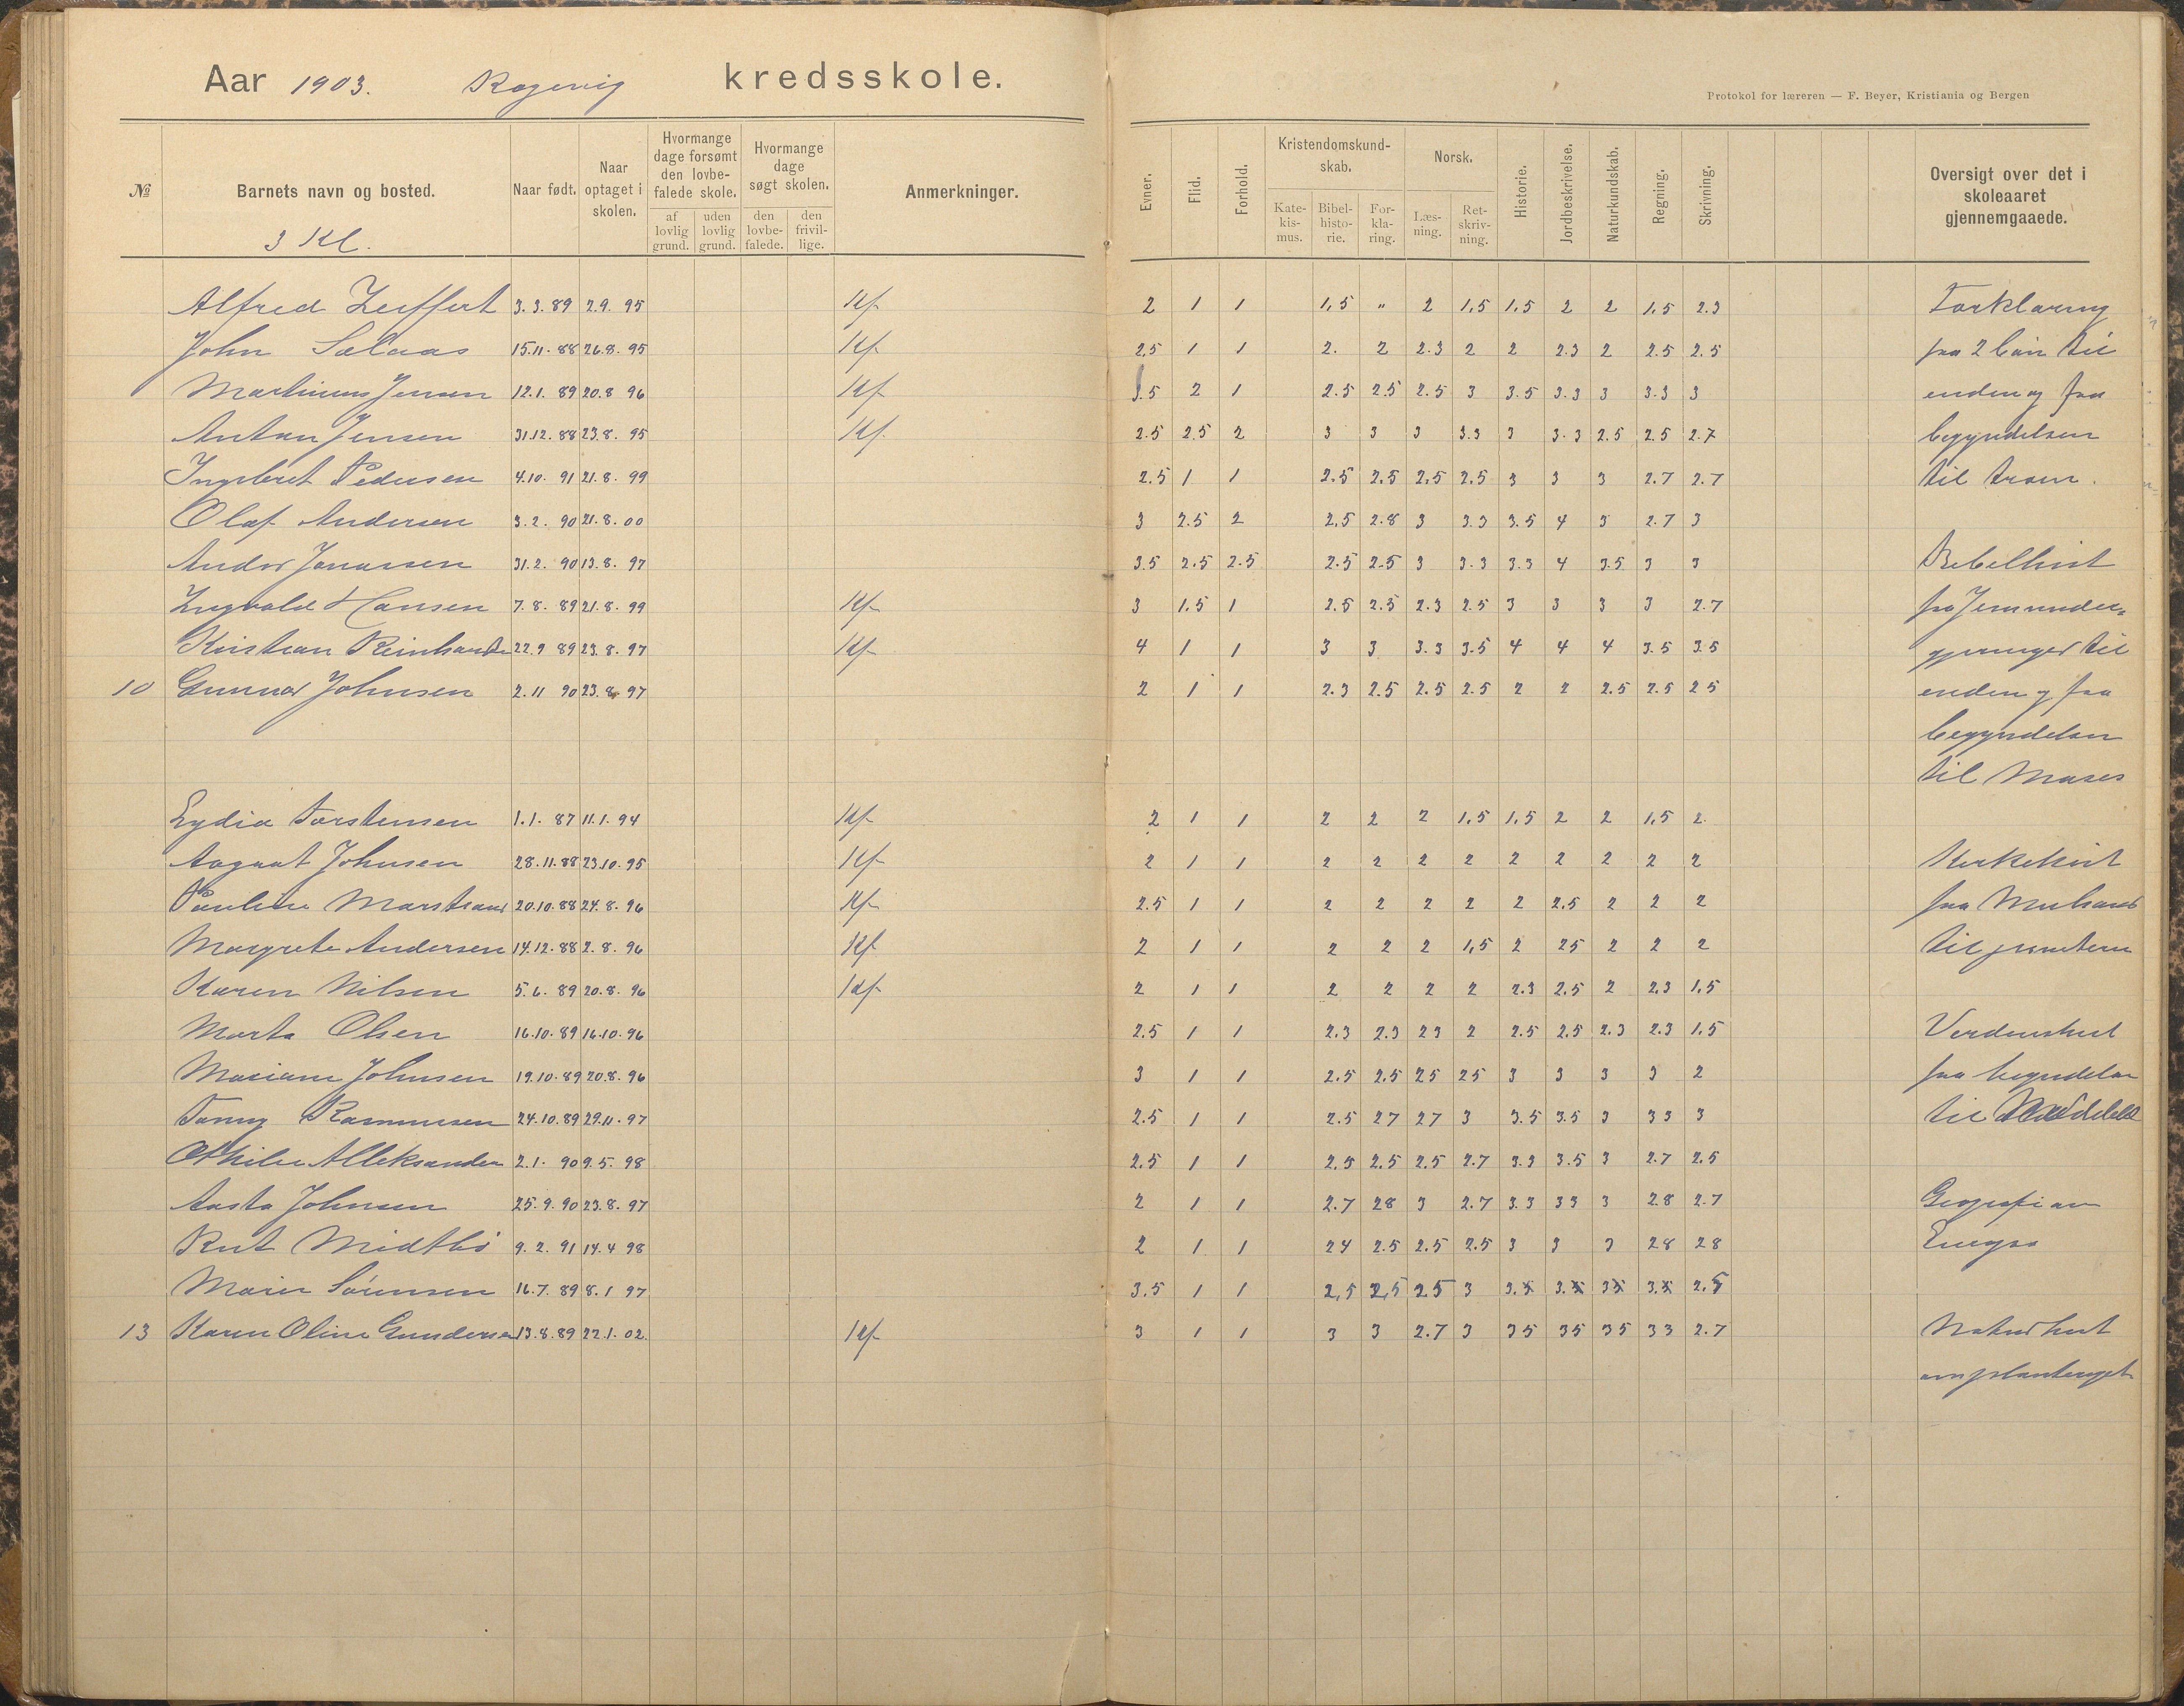 Aar 1903. Kogevig kredsskole.
Protokol for læreren — F. Beyer, Kristiania og Bergen
№ Barnets navn og bosted. Naar født. Naar optaget i skolen. Hvormange dage forsømt den lovbefalede skole. af lovlig grund. uden lovlig grund. Hvormange dage søgt skolen. den lovbefalede. den frivillige. Anmerkninger.
Evner. Flid. Forhold. Kristendomskundskab. Katekismus. Bibelhistorie. Forklaring. Norsk. Læsning. Retskrivning. Historie. Jordbeskrivelse. Naturkundskab. Regning. Skrivning. Oversigt over det i skoleaaret gjennemgaaede.
3 Kl.
Alfred Zeiffert 3.3.89 2.9.95 Kf. 2 1 1 1,5 " 2 1,5 1,5 2 2 1,5 2.3 Forklaring
John Salaas 15.11.88 26.8.95 Kf. 2,5 1 1 2. 2 2.3 2 2 2.3 2 2.5 2.5 fra 2 bøn til
Martinius Jensen 12.1.89 20.8 96 Kf. 3.5 2 1 2.5 2.5 2.5 3 3.5 3.3 3 3.3 3 enden og fra
Anton Jensen 31.12.88 23.8.95 Kf. 2.5 2.5 2 3 3 3 3.3 3 3.3 2.5 2.5 2.7 begyndelsen
Ingebret Pedersen 4.10.91 21.8.99 2.5 1 1 2.5 2.5 2,5 2.5 3 3 3 2.7 2.7 til troen.
Olaf Andersen 3.2.90 21.8.00 3 2.5 2 2,5 2.8 3 3.3 3.5 4 3 2.7 3
Andor Jonassen 31.2.90 13.8.97 3.5 2.5 2.5 2.5 2.5 3 3.3 3.3 4 3.5 3 3 Bibelhist
Ingvald Hansen 7.8.89 21.8.99 Kf. 3 1.5 1 2.5 2.5 2.3 2.5 3 3 3 3 2.7 fra Jesu under=
Kristian Reinhards 22.9 89 23.8.97 Kf. 4 1 1 3 3 3.3 3.5 4 4 4 3.5 3.5 gjerninger til
10 Gunnar Johnsen 2.11 90 23.8.97 2 1 1 2.3 2.5 2.5 2.5 2 2 2.5 2.5 2 5 enden og fra
begyndelsen
til Moses
Lydia Torstensen 1.1.87 11.1.94 Kf. 2 1 1 2 2 2 1,5 1,5 2 2 1,5 2.
Aagaat Johnsen 28.11.88 23.10.95 Kf. 2 1 1 2 2 2 2 2 2 2 2 2 Kirkehist
Pauline Marstrand 20.10.88 24.8.96 Kf. 2.5 1 1 2 2 2 2 2 2,5 2 2 2 fra Muhamed
Margrete Andersen 14.12.88 2.8.96 Kf. 2 1 1 2 2 2 1,5 2 25 2 2 2 til
Karen Nilsen 5.6.89 20.8.96 Kf. 2 1 1 2 2 2 2 2.3 2.5 2 2,3 1,5
Marta Olsen 16.10.89 16.10.96 2.5 1 1 2.3 2.3 23 2 2.5 2.5 2.3 2.3 1.5 Verdenshist
Mariane Johnsen 19.10.89 20.8.96 3 1 1 2.5 2,5 25 25 3 3 3 3 2 fra begyndelsen
Fanny Rasmussen 24.10.89 29.11.97 2.5 1 1 2.5 27 27 3 3.5 3.5 3 33 3 til
Othilie Alleksander 2.1.90 9.5.98 2,5 1 1 2,5 2.5 2.5 2.7 3.3 3.5 3 2.7 2.5
Aasta Johnsen 25.9.90 23.8.97 2 1 1 2.7 28 3 2.7 3.3 33 3 28 2.7 Geografi om
Rut Midtbø 9.2.91 14.4 98 2 1 1 24 2.5 2.5 2.5 3 3 3 28 28 Europa
Marie Sørensen 16.7.89 8.1 97 3.5 1 1 2,5 2,5 25 3 3. 3. 3 3. 2,5
13 Karen Oline Gundersen 13.8.89 22.1.02. Kf. 3 1 1 3 3 2.7 3 35 35 35 33 2.7 Naturhist
om planteriget